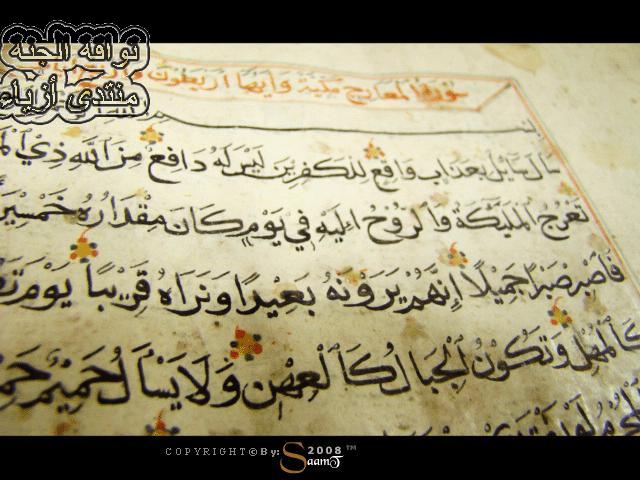 نوافه الجنه
منتدى أزياء
سورة المعارج مكية وآيها أربعون
سَأَلَ سَايِلٌ بِعَذَابٍ وَاقِعٍ لِلْكٰفِرِينَ لَيْسَ لَهُ دَافِعٌ مِنَ اللَّهِ ذِي
تَعْرُجُ الْمَلٰٓئِكَةُ وَالرُّوحُ إِلَيْهِ فِي يَوْمٍ كَانَ مِقْدَارُهُ خَمْسِينَ
فَاصْبِرْ صَبْرًا جَمِيلًا إِنَّهُمْ يَرَوْنَهُ بَعِيدًا وَنَرَاهُ قَرِيبًا يَوْمَ
كَالْمُهْلِ وَتَكُونُ الْجِبَالُ كَالْعِهْنِ وَلَا يَسْأَلُ حَمِيمٌ
COPYRIGHT © By: Saamt 2008 ™